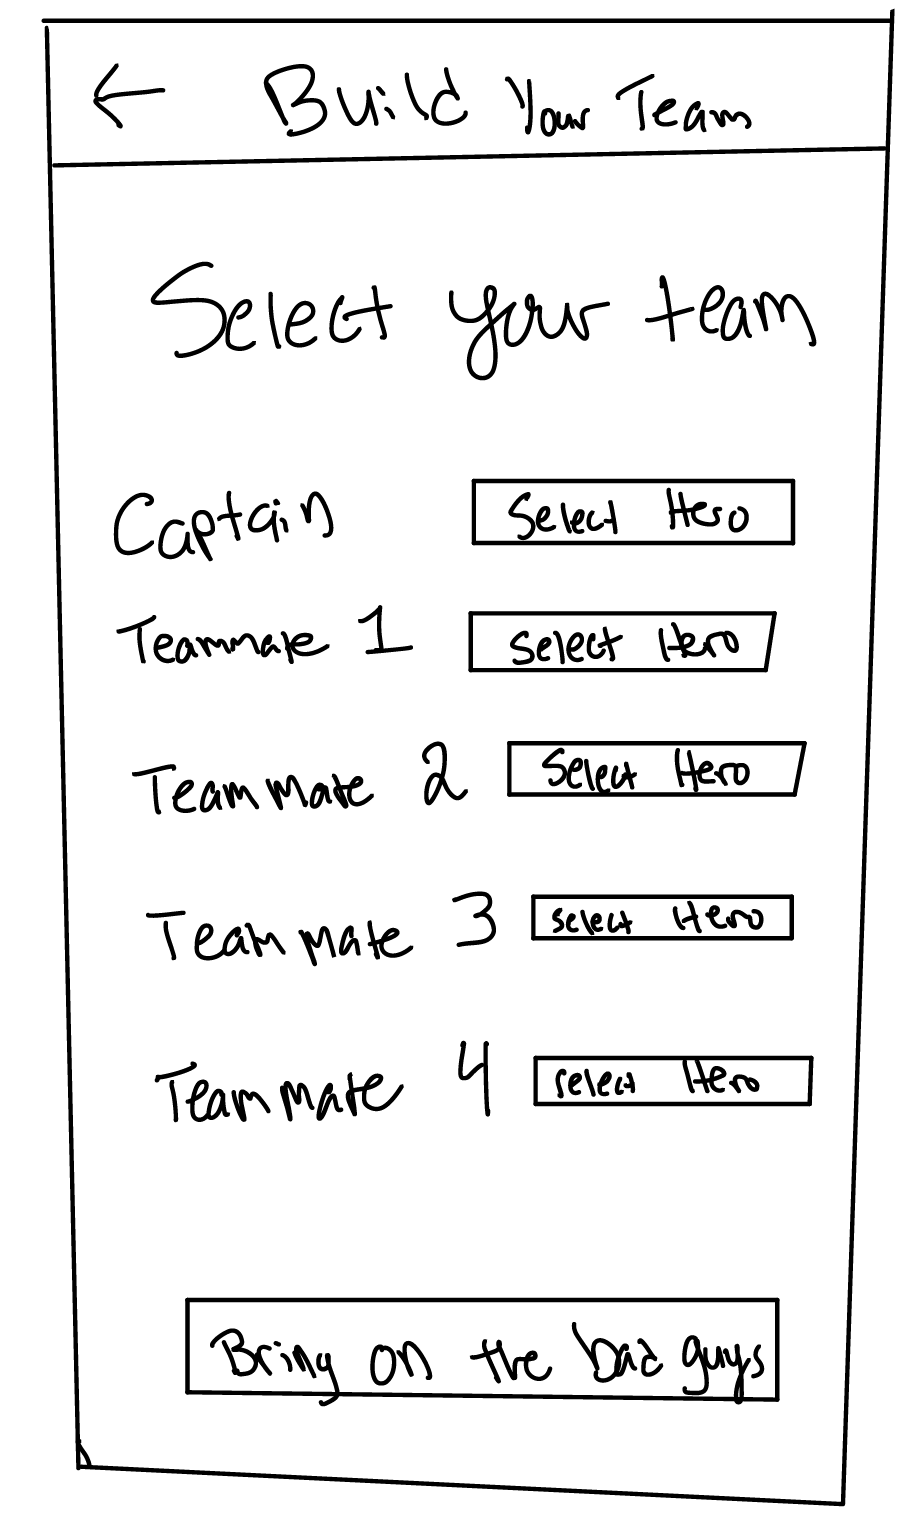 ← Build Your Team
Select your team
Captain Select Hero
Teammate 1 Select Hero
Teammate 2 Select Hero
Teammate 3 select Hero
Teammate 4 select Hero
Bring on the bad guys